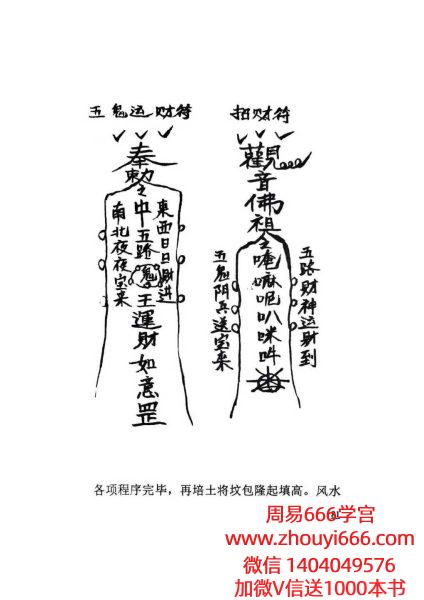 五鬼运财符
奉勅令
中五路鬼王運財如意罡
東西日日財進
南北夜夜宝来
招财符
觀音佛祖
令唵嘛呢叭咪吽
五路财神运财到
五鬼阴兵送宝来
各项程序完毕，再培土将坟包隆起填高。风水
周易666学宫
www.zhouyi666.com
微信 1404049576
加微V信送1000本书